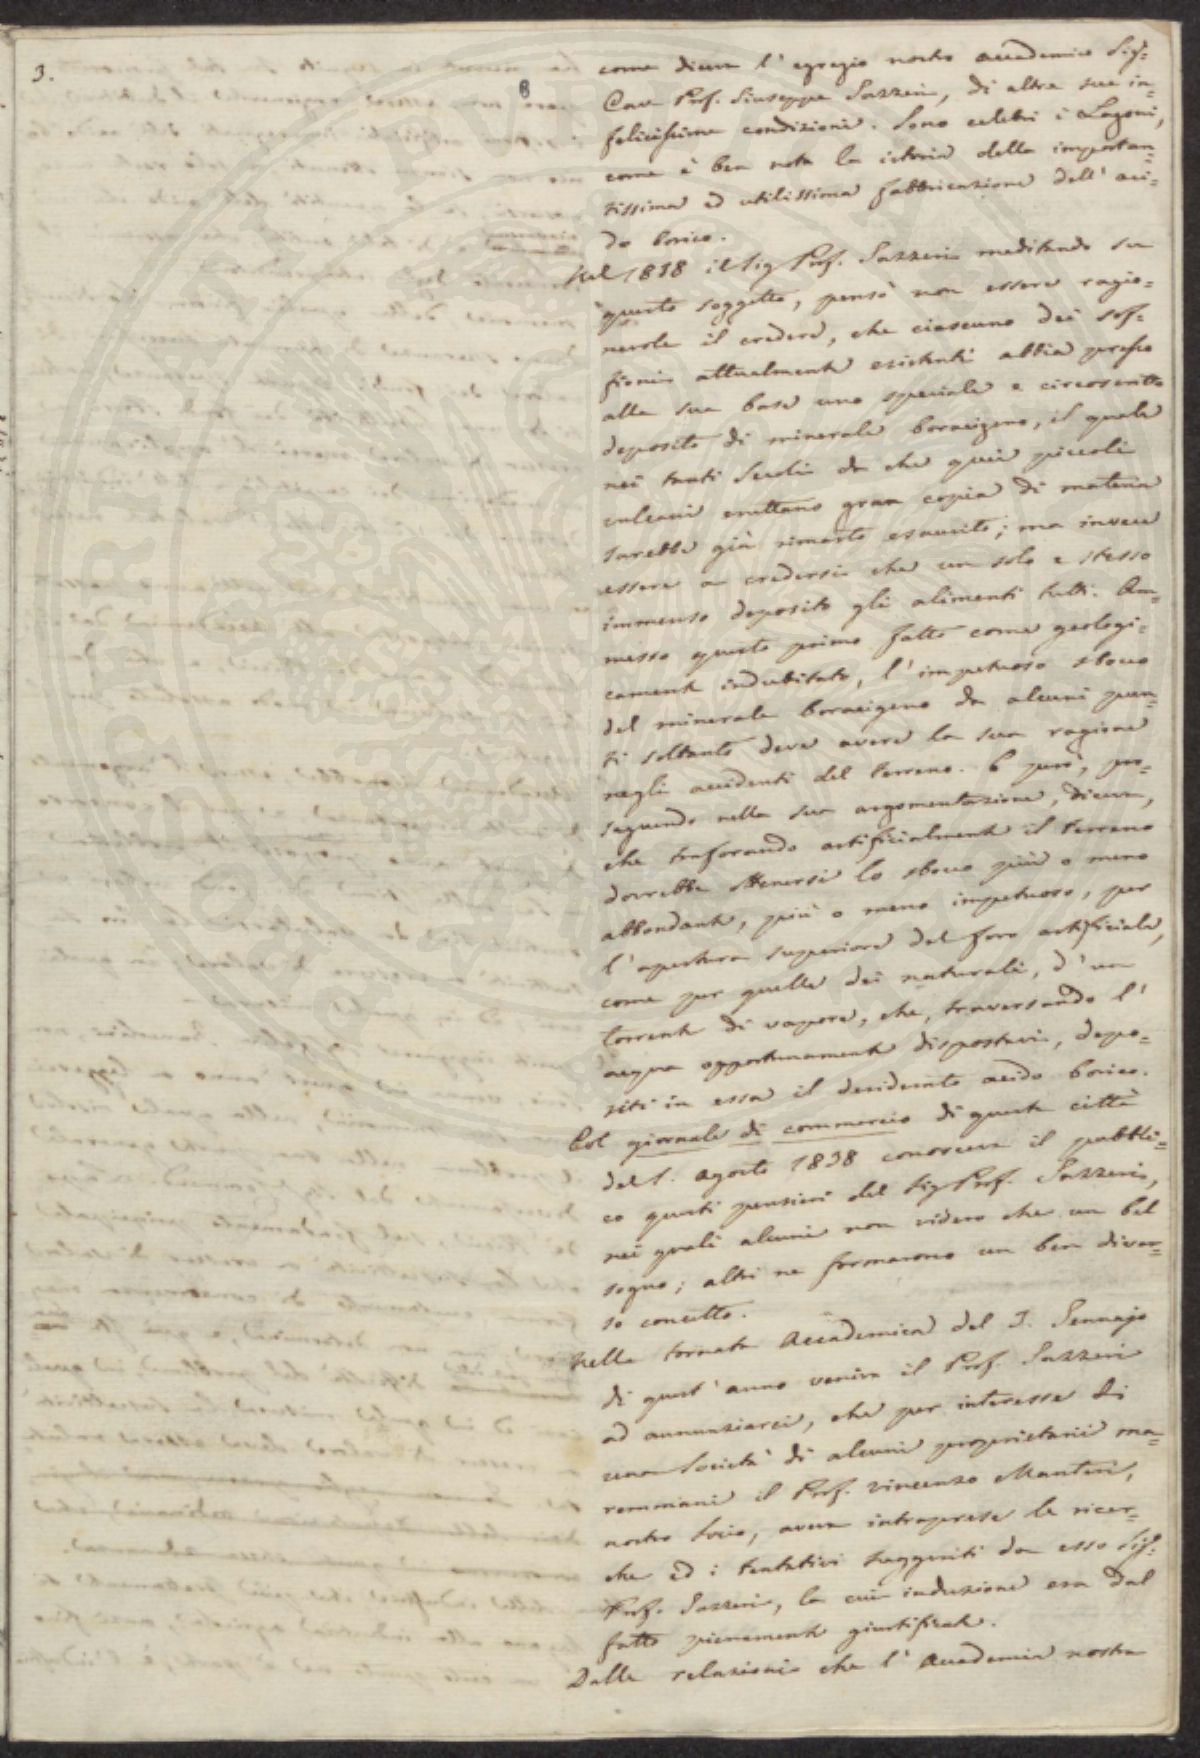 3.
8
come diceva l' egregio nostro accademico Sig.
Cav. Prof. Giuseppe Gazzeri, di altre sue in=
felicissime condizioni. Sono celebri i Lagoni,
come è ben nota la istoria della importan=
tissima ed utilissima fabbricazione dell' aci=
do borico.
Nel 1838 il Sig Prof. Gazzeri meditando su
questo soggetto, pensò non essere ragio=
nevole il credere, che ciascuno dei sof=
fioni attualmente esistenti abbia presso
alla sua base uno speciale e circoscritto
deposito di minerale boracigeno, il quale
nei tanti secoli da che quei piccoli
vulcani eruttano gran copia di materia
sarebbe già rimasto esaurito; ma invece
essere a credersi che un solo e stesso
immenso deposito gli alimenti tutti. Am=
messo questo primo fatto come geologi=
camente indubitato, l' impetuoso sbocco
del minerale boracigeno da alcuni pun=
ti soltanto deve avere la sua ragione
negli accidenti del terreno. E però, pro=
seguendo nella sua argomentazione, diceva,
che traforando artificialmente il terreno
dovrebbe ottenersi lo sbocco più o meno
abbondante, più o meno impetuoso, per
l' apertura superiore del foro artificiale,
come per quelle dei naturali, d' un
torrente di vapore, che, traversando l'
acqua opportunamente dispostavi, depo=
siti in essa il desiderato acido borico.
Col giornale di commercio di questa città
del 1. Agosto 1838 conosceva il pubbli=
co questi pensieri del Sig Prof. Gazzeri,
nei quali alcuni non videro che un bel
sogno; altri ne formarono un ben diver=
so concetto.
Nella tornata Accademica del 3. Gennajo
di quest' anno veniva il Prof. Gazzeri
ad annunziarci, che per interesse di
una Società di alcuni proprietarii ma=
remmani il Prof. Vincenzo Manteri,
nostro Socio, aveva intraprese le ricer=
che ed i tentativi suggeriti da esso Sig.
Prof. Gazzeri, la cui induzione era dal
fatto pienamente giustificata.
Dalla relazione che l' Accademia nostra